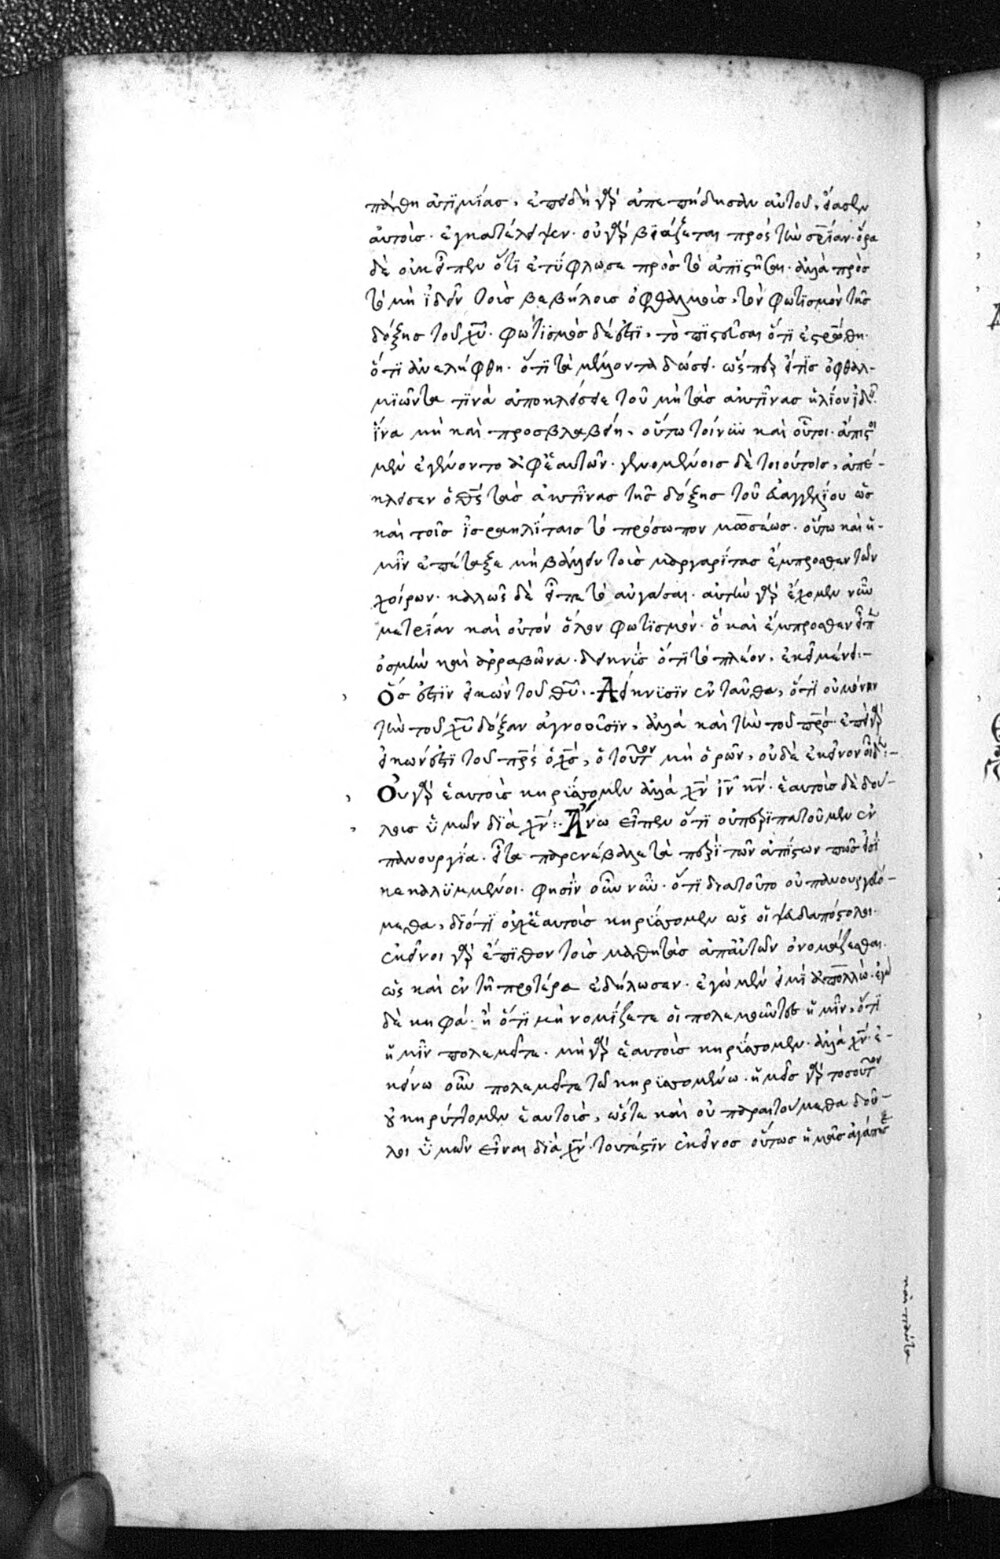 πάθη ἀτιμίας, ἐπειδὴ γὰρ ἀπεπήδησαν αὐτοῦ, εἴασεν
αὐτοὺς. ἐγκατέλειψεν. οὐ γὰρ βιάζεται πρὸς τὴν σρίαν. ὅρα
δὲ οὐκ εἶπεν ὅτι ἐτύφλωσε πρὸς τὸ ἀπιστῆσαι. ἀλλὰ πρὸς
τὸ μὴ ἰδεῖν τοὺς βεβήλοις ὀφθαλμοῖς, τὸν φωτισμὸν τῆς
δόξης τοῦ χῦ. φωτισμὸς δέ ἐστι, τὸ πιστεῦσαι ὅτι ἐσρώθη.
ὅτι ἀνελήφθη. ὅτι τὰ μέλλοντα δώσει. ὥσπερ εἴ τις ὀφθαλ-
μιῶντα τινὰ ἀποκλείσειε τοῦ μὴ τὰς ἀκτῖνας ἡλίου ἰδεῖν
ἵνα μὴ καὶ προσβλαβείη. οὕτω τοίνυν καὶ οὗτοι. ἄπιστοι
μὲν ἐγένοντο ἀφ' ἑαυτῶν. γενομένοις δὲ τοιούτοις, ἀπέ-
κλεισεν ὁ θς τὰς ἀκτῖνας τῆς δόξης τοῦ εὐαγγελίου ὡς
καὶ τοῖς ἰσραηλίταις τὸ πρόσωπον μωσέως. οὕτω καὶ ἡ-
μῖν ἐπέταξε μὴ βάλλειν τοὺς μαργαρίτας ἔμπροσθεν τῶν
χοίρων. καλῶς δὲ εἶπε τὸ αὐγάσαι. αὐτὴν γὰρ ἔχομεν νῦν
μετρίαν καὶ οὐ τὸν ὅλον φωτισμόν. ὃ καὶ ἔμπροσθεν εἶπεν
ὀσμὴν καὶ ἀρραβῶνα. δεικνὺς ὅτι τὸ πλέον, ἐκεῖ μένει:-
Ὅς ἐστιν εἰκὼν τοῦ θῦ. Δείκνυσιν ἐνταῦθα, ὅτι οὐ μόνον
τὴν τοῦ χῦ δόξαν ἀγνοοῦσιν, ἀλλὰ καὶ τὴν τοῦ πρς. ἐπεὶ γὰρ
εἰκών ἐστι τοῦ πρς ὁ χς, ὁ τοῦτον μὴ ὁρῶν, οὐδὲ ἐκεῖνον οἶδεν:-
Οὐ γὰρ ἑαυτοὺς κηρύσσομεν ἀλλὰ χν ιν κν. ἑαυτοὺς δὲ δού-
λους ὑμῶν διὰ χν:- Ἄνω εἶπεν ὅτι οὐ περιπατοῦμεν ἐν
πανουργία. εἶτα παρενέβαλε τὰ περὶ τῶν ἀπίστων πῶς εἰσὶ
κεκαλυμμένοι. φησὶν οὖν νῦν. ὅτι διατοῦτο οὐ πανουργευό-
μεθα, διότι οὐχ' ἑαυτοὺς κηρύσσομεν ὡς οἱ ψευδαπόστολοι.
ἐκεῖνοι γὰρ ἔπειθον τοὺς μαθητὰς ἀπ' αὐτῶν ὀνομάζεσθαι.
ὡς καὶ ἐν τῆ προτέρα ἐδήλωσεν. ἐγὼ μὲν εἰμὶ ἀπολλὼ. ἐγὼ
δὲ κηφᾶ. ἢ ὅτι μὴ νομίζετε οἱ πολεμοῦντες ἡμῖν, ὅτι
ἡμῖν πολεμεῖτε. μὴ γὰρ ἑαυτοὺς κηρύσσομεν. ἀλλὰ χν. ἐ-
κείνω οὖν πολεμεῖτε τῶ κηρυσσομένω. ἡμεῖς γὰρ τοσοῦτον
οὐ κηρύττομεν ἑαυτοὺς, ὥστε καὶ οὐ παραιτούμεθα δοῦ-
λοι ὑμῶν εἶναι διὰ χν. τουτέστιν ἐκεῖνος οὕτως ἡμᾶς ἀγαπήσας
καὶ πάντα